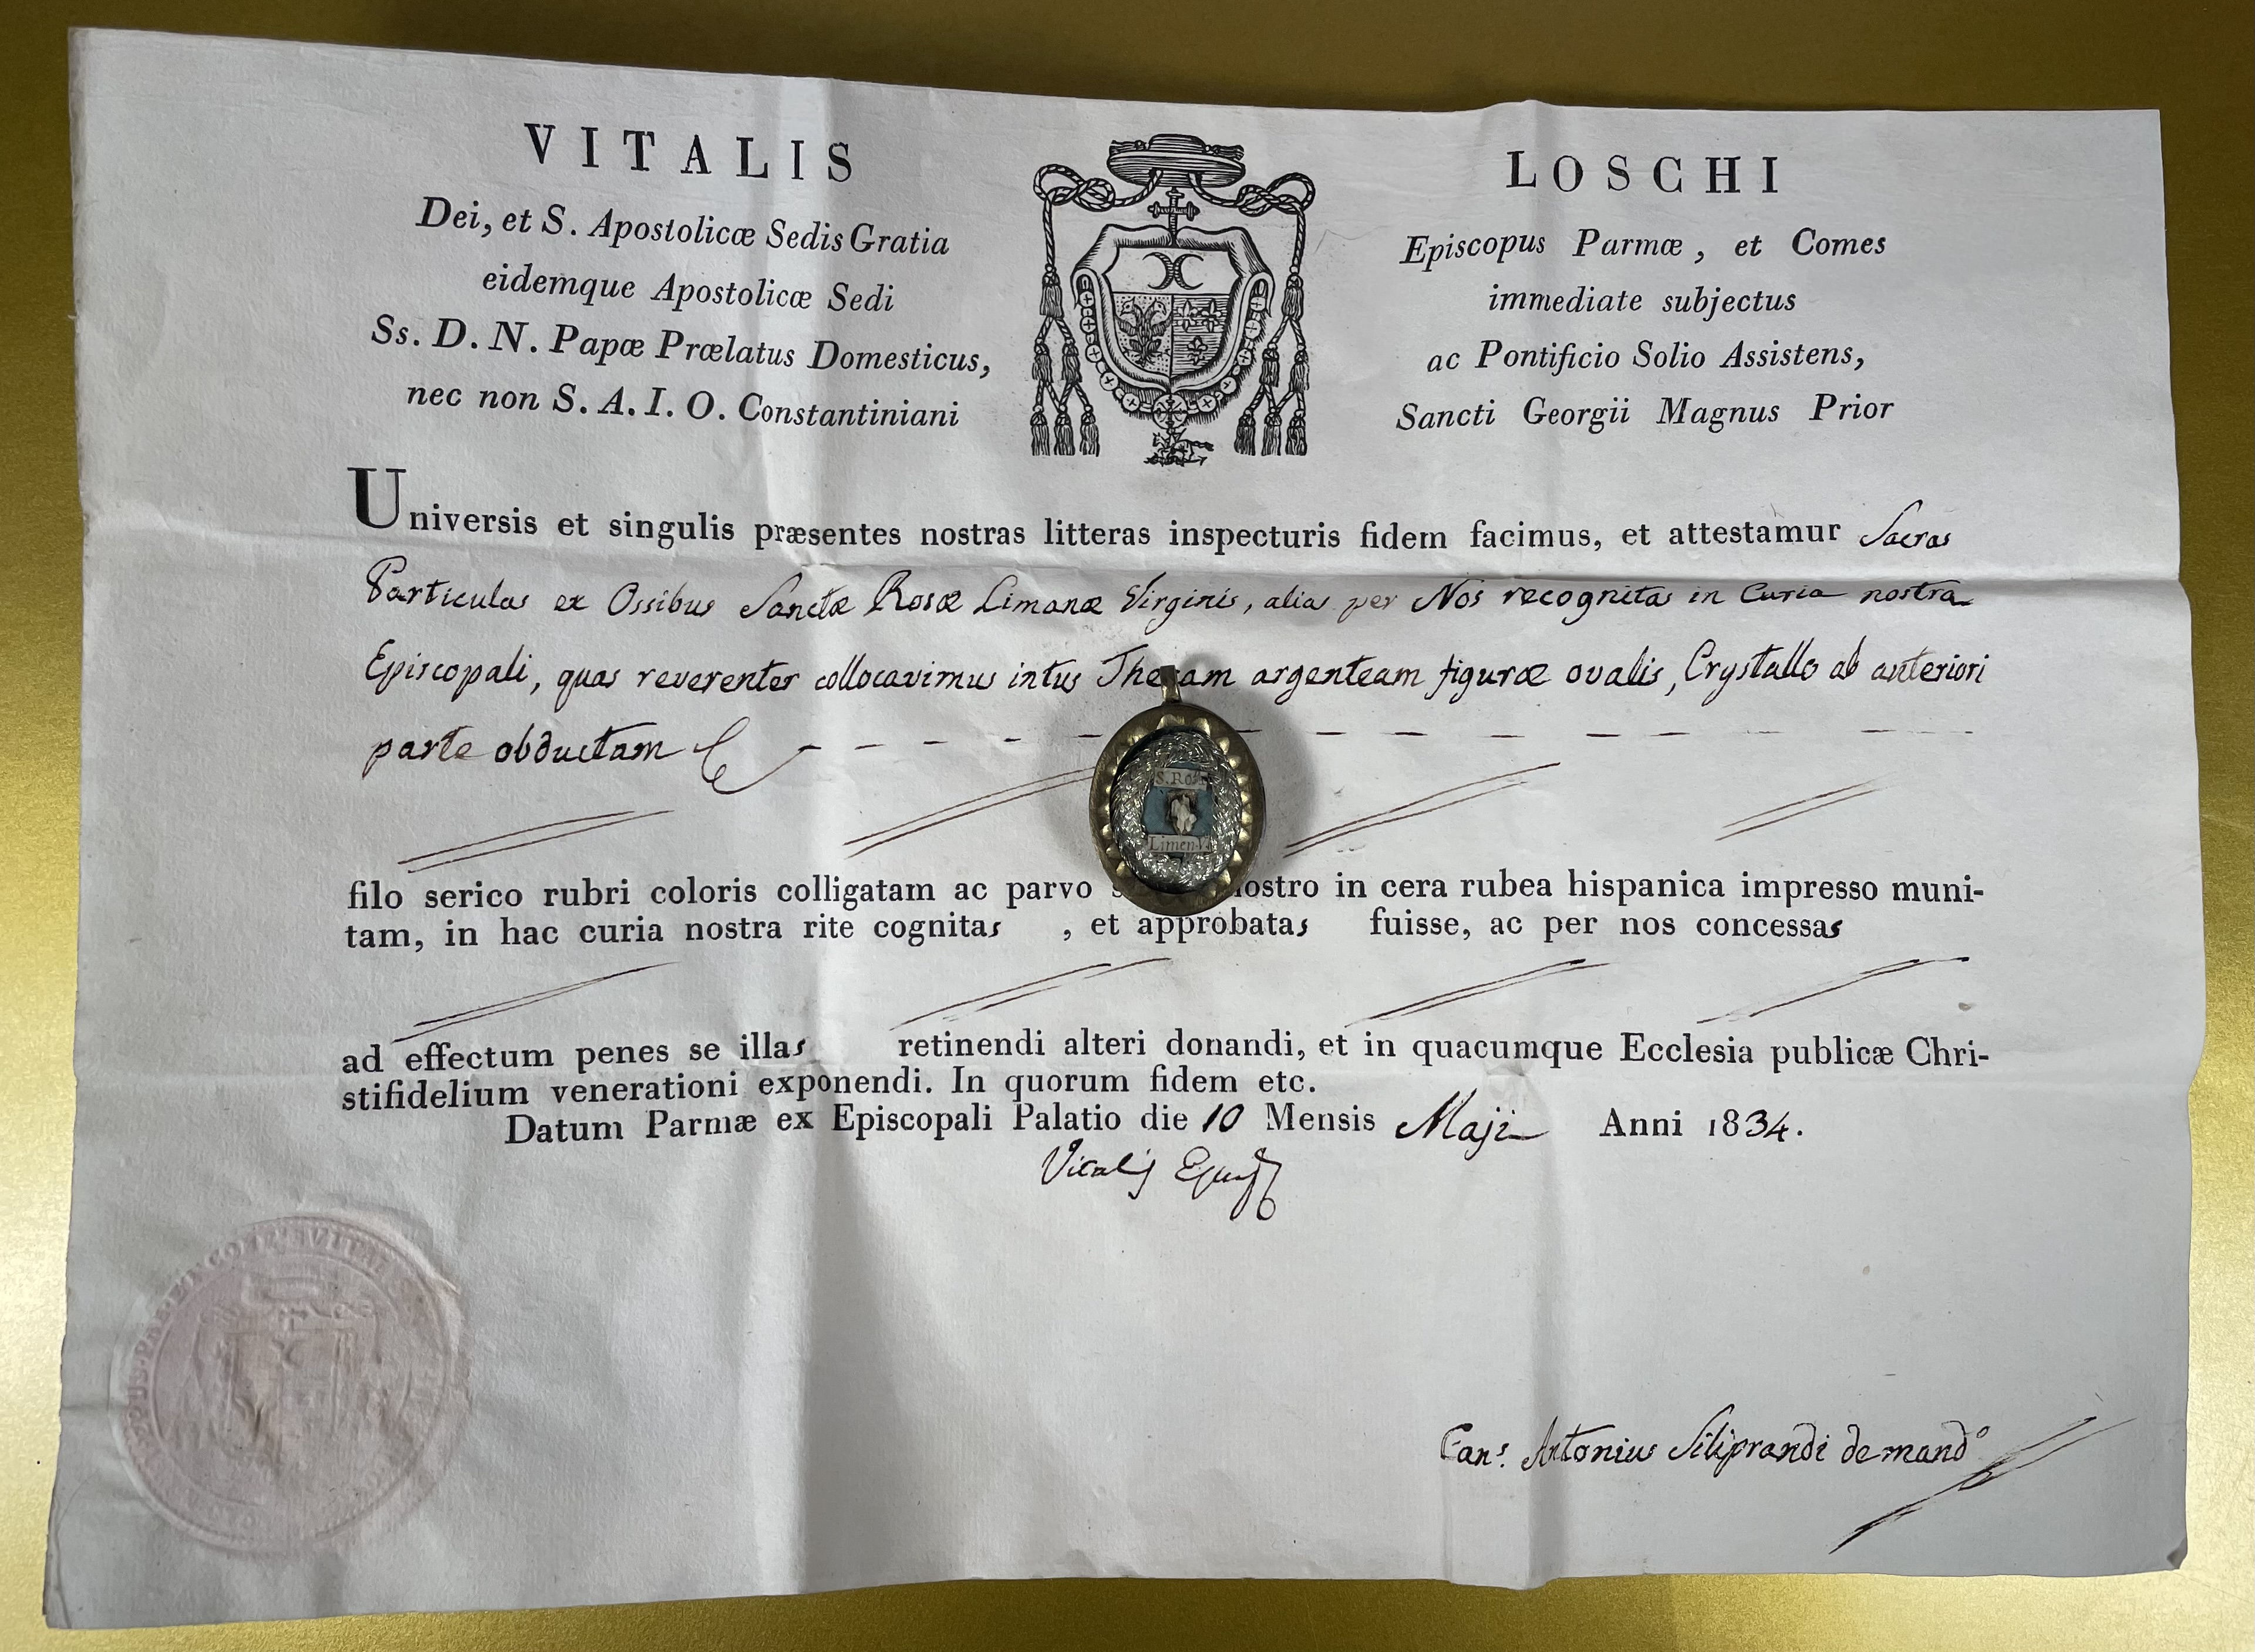 VITALIS LOSCHI
Dei, et S. Apostolicæ Sedis Gratia Episcopus Parmæ, et Comes
eidemque Apostolicæ Sedi immediate subjectus
Ss. D. N. Papæ Prælatus Domesticus, ac Pontificio Solio Assistens,
nec non S. A. I. O. Constantiniani Sancti Georgii Magnus Prior
Universis et singulis præsentes nostras litteras inspecturis fidem facimus, et attestamur Sacras
Particulas ex Ossibus Sanctæ Rosæ Limanæ Virginis, alias per Nos recognitas in Curia nostra
Episcopali, quas reverenter collocavimus intus Thecam argenteam figuræ ovalis, Crystallo ab anteriori
parte obductam
S. Rosæ
Limen. V.
filo serico rubri coloris colligatam ac parvo nostro in cera rubea hispanica impresso muni-
tam, in hac curia nostra rite cognitas , et approbatas fuisse, ac per nos concessas
ad effectum penes se illas retinendi alteri donandi, et in quacumque Ecclesia publicæ Chri-
stifidelium venerationi exponendi. In quorum fidem etc.
Datum Parmæ ex Episcopali Palatio die 10 Mensis Maji Anni 1834.
Vitalis Epus
Can.s Antonius Siliprandi de mand.o